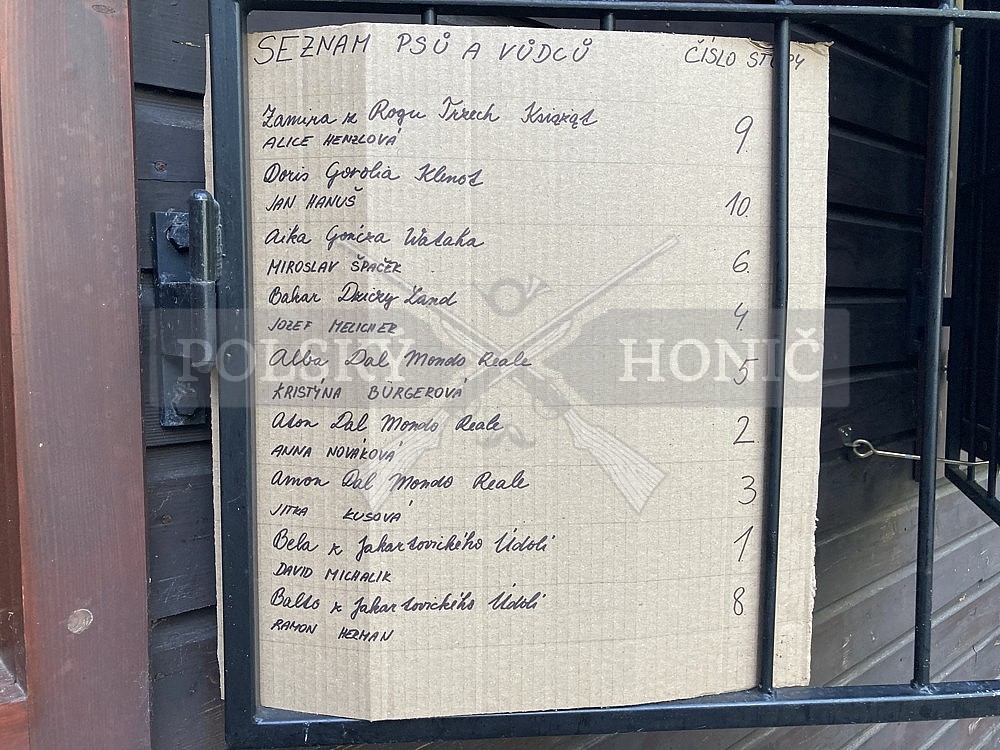 SEZNAM PSŮ A VŮDCŮ ČÍSLO STOPY
Zamira z Rogu Trzech Książąt 9.
ALICE HENZLOVÁ
Doris Gorolia Klenot
JAN HANUŠ 10.
Aika Gończa Wataha
MIROSLAV ŠPAČEK 6.
Bahar Dziczy Land
JOZEF MELICHER 4.
POLSKÝ HONIČ
Alba Dal Mondo Reale 5
KRISTÝNA BÜRGEROVÁ
Aton Dal Mondo Reale 2.
ANNA NOVÁKOVÁ
Amon Dal Mondo Reale 3
JITKA KUSOVÁ
Bela z Jakartovického Údolí 1
DAVID MICHALIK
Balto z Jakartovického Údolí 8
RAMON HERMAN